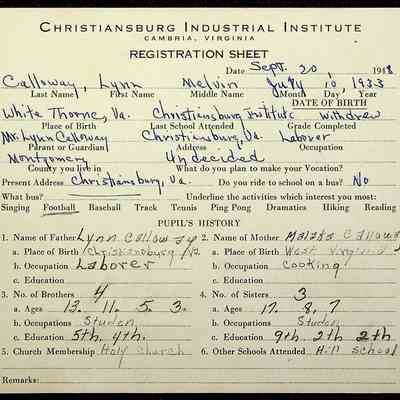 CHRISTIANSBURG INDUSTRIAL INSTITUTE
CAMBRIA, VIRGINIA
REGISTRATION SHEET
Date Sept. 20, 1948
Calloway, Lynn Melvin July 10, 1933
Last Name First Name Middle Name Month Day Year
DATE OF BIRTH
White Thorne, Va. Christiansburg Institute withdrew
Place of Birth Last School Attended Grade Completed
Mr. Lynn Calloway Christiansburg, Va. Laborer
Parant or Guardian Address Occupation
Montgomery Undecided
County you live in What do you plan to make your Vocation?
Present Address Christiansburg, Va. Do you ride to school on a bus? No
What bus? Underline the activities which interest you most:
Singing Football Baseball Track Tennis Ping Pong Dramatics Hiking Reading
PUPIL'S HISTORY
1. Name of Father Lynn Calloway 2. Name of Mother
a. Place of Birth Christiansburg Va a. Place of Birth West Virginia
b. Occupation Laborer b. Occupation Cooking
c. Education c. Education
3. No. of Brothers 4 4. No. of Sisters 3
a. Ages 13. 11. 5. 3. a. Ages 17. 8, 7
b. Occupations Studen b. Occupations Studen
c. Education 5th, 4th. c. Education 9th. 2th 2th
5. Church Membership Holy Church 6. Other Schools Attended Hill School
Remarks: